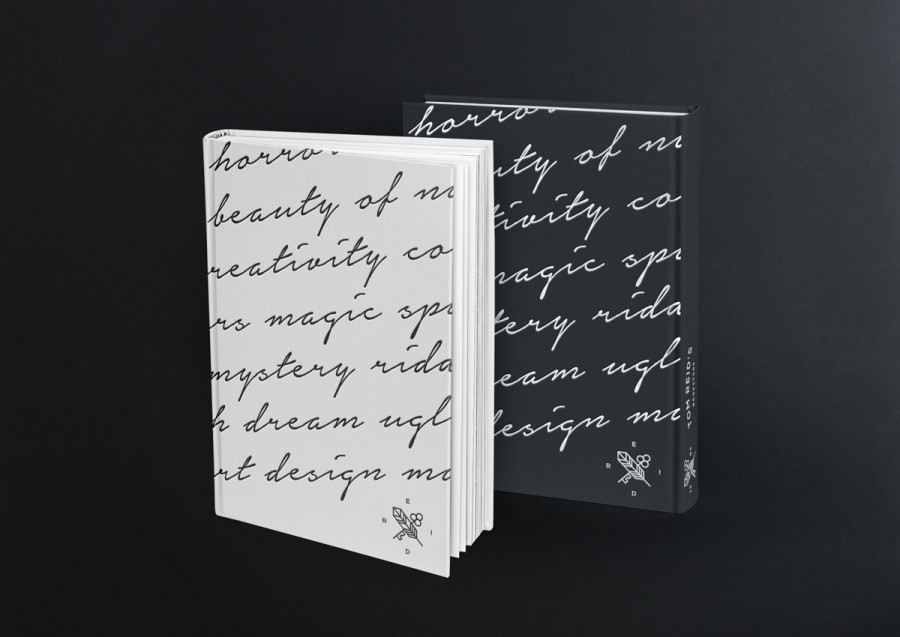 horro
beauty of n
reativity co
rs magic sp
mystery rid
h dream ugl
rt design m
E
R I
D
horro
uty of n
tivity co
magic sp
tery rida
eam ugl
design m
E
R I
D
TOM REID'S